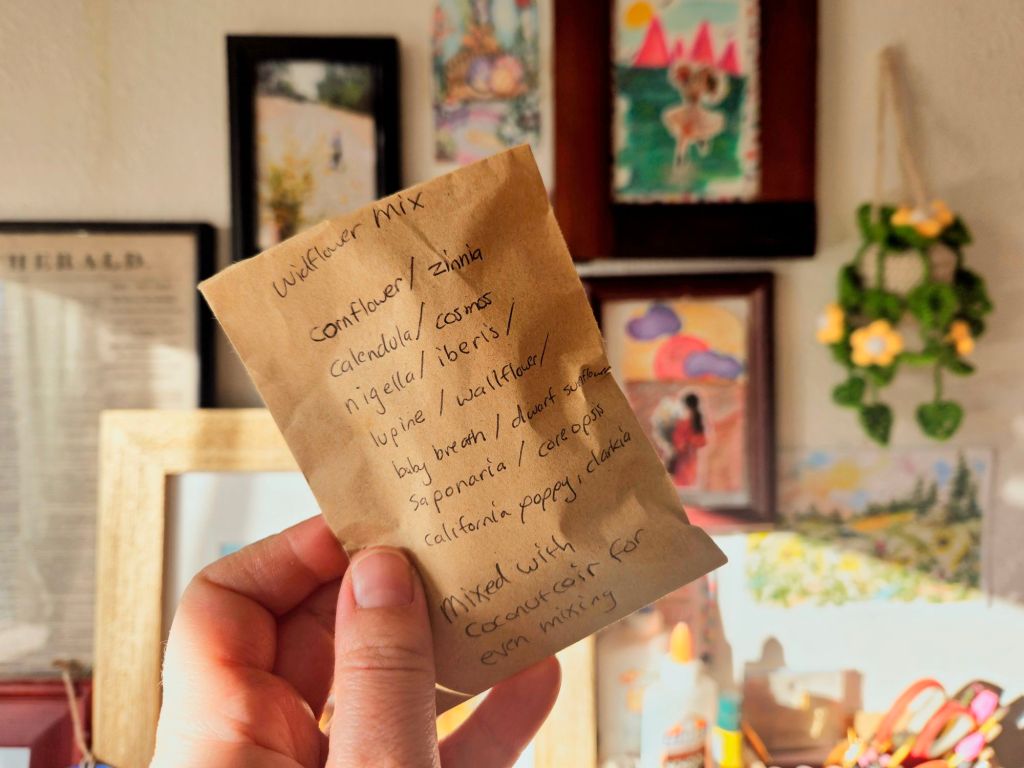 HERALD.
Widflower Mix
cornflower/ zinnia
calendula/ cosmos
nigella/ iberis /
lupine / wallflower/
baby breath / dwarf sunflower
saponaria / coreopsis
california poppy, clarkia
Mixed with
coconut coir for
even mixing